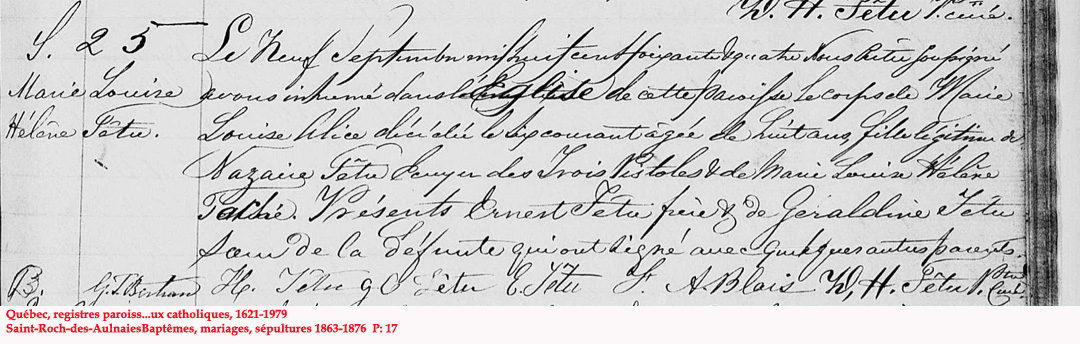 D. H. Têtu Ptre curé.
S. 25 Le Neuf Septembre mil huit cent soixante & quatre Nous Prêtre soussigné
Marie Louise avons inhumé dans l'Eglise de cette paroisse le corps de Marie
Hélène Têtu. Louise Alice décédée le six courant âgée de huit ans, fille légitime de
Nazaire Têtu Ecuyer des Trois Pistoles & de Marie Louise Hélène
Taché. Présents Ernest Têtu frère & de Géraldine Têtu
sœur de la défunte qui ont signé avec quelques autres parents.
H. Têtu G Têtu E. Têtu F. A. Blais D. H. Têtu Ptre Curé.
B. G. T. Bertrand
Québec, registres paroiss...ux catholiques, 1621-1979
Saint-Roch-des-AulnaiesBaptêmes, mariages, sépultures 1863-1876 P: 17